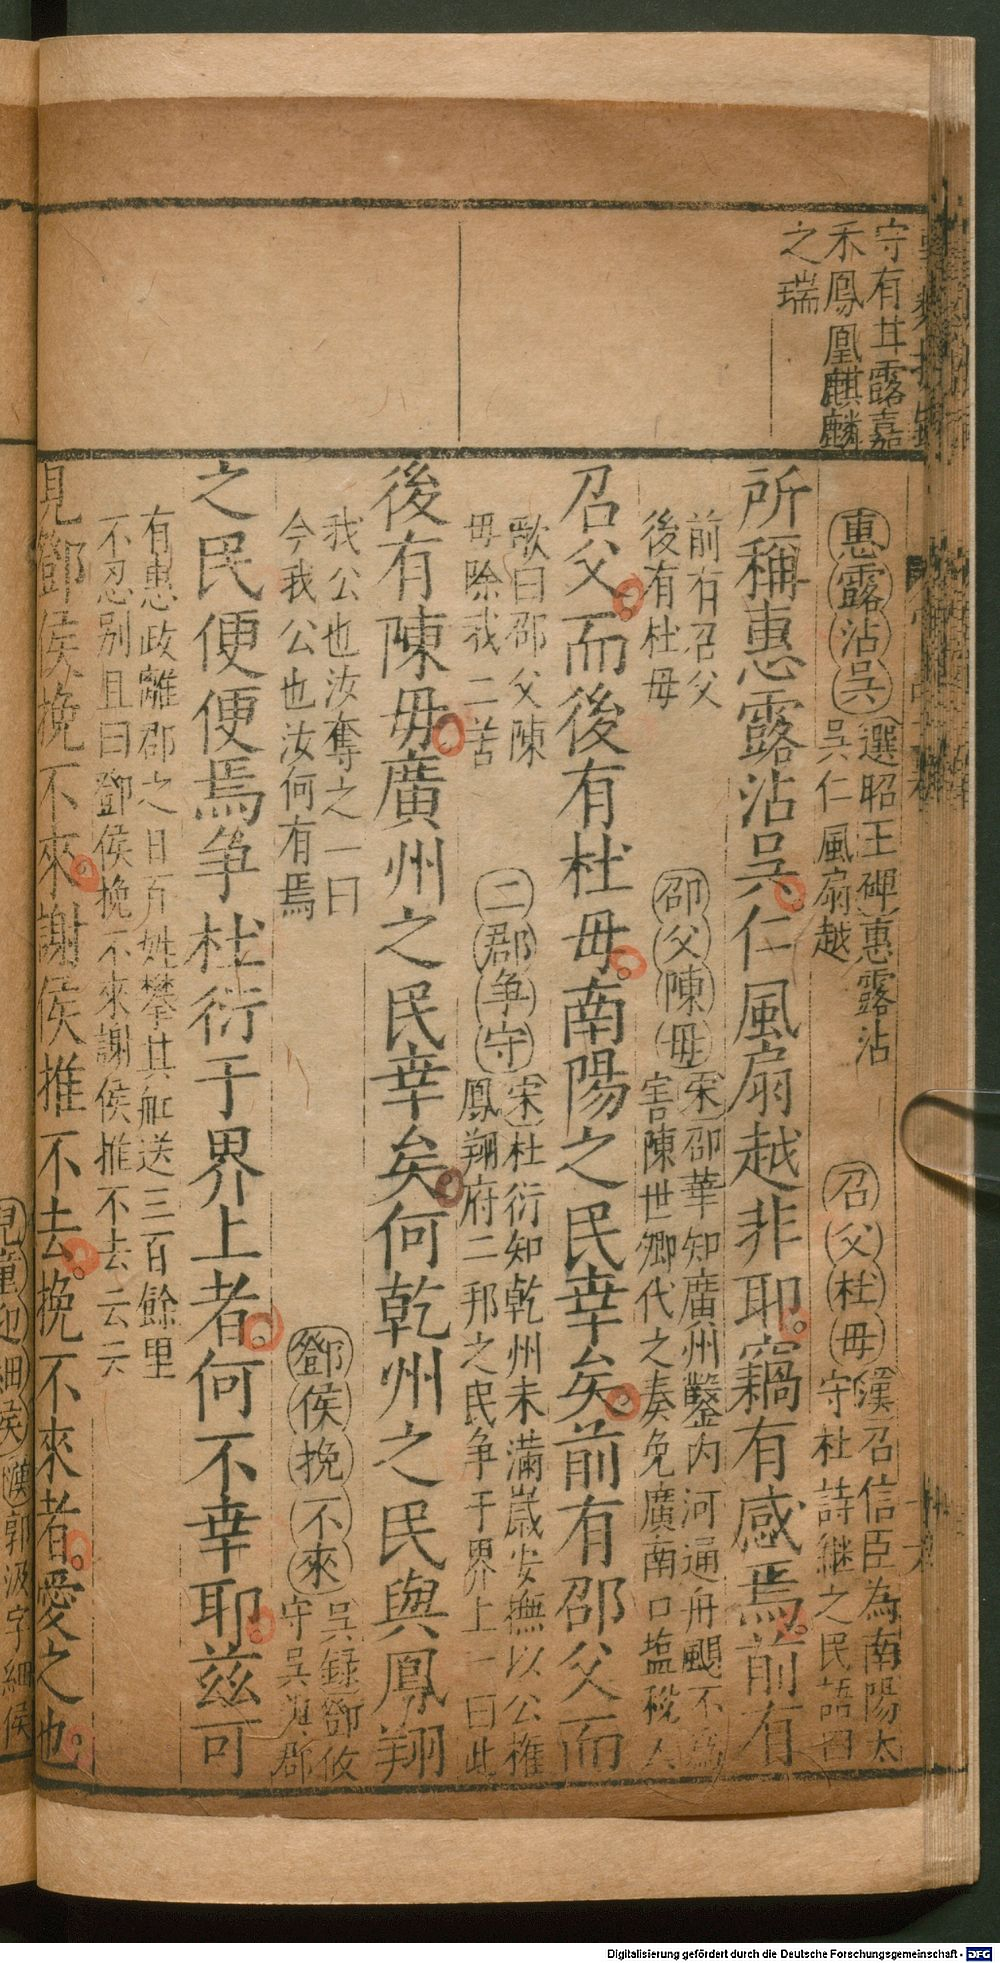 守有甘露嘉
禾鳳凰麒麟
之瑞
惠露沾吳
選昭王碑惠露沾
吳仁風扇越
召父杜母
漢召信臣為南陽太
守杜詩繼之民語曰
所稱惠露沾吳仁風扇越非耶竊有感焉前有
前有召父
後有杜母
邵父陳母
宋邵華知廣州鑿內河通舟颶不為
害陳世卿代之奏免廣南口塩稅人
召父而後有杜母南陽之民幸矣前有邵父而
歌曰邵父陳
母除我二苦
二郡争守
宋杜衍知乾州未滿歲安撫以公權
鳳翔府二邦之民争于界上一曰此
後有陳母廣州之民幸矣何乾州之民與鳳翔
我公也汝奪之一曰
今我公也汝何有焉
鄧侯挽不來
吳録鄧攸
守吳為郡
之民便便焉争杜衍于界上者何不幸耶茲可
有惠政離郡之日百姓攀其舡送三百餘里
不忍别且曰鄧侯挽不來謝侯推不去云云
見鄧侯挽不來謝侯推不去挽不來者愛之也
兒童迎細侯
漢郭汲字細侯
Digitalisierung gefördert durch die Deutsche Forschungsgemeinschaft - DFG